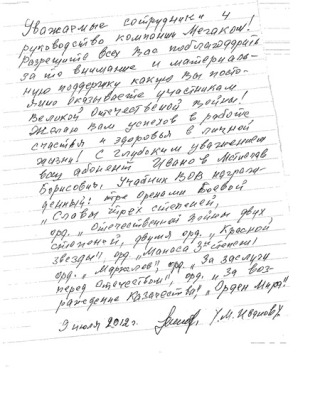 Уважаемые сотрудники и
руководство компании Мегаком!
Разрешите всех Вас поблагодарить
за то внимание и материаль-
ную поддержку какую Вы посто-
янно оказываете участникам
Великой Отечественной войны!
Желаю Вам успехов в работе
счастья и здоровья в личной
жизни! С глубоким уважением
ваш абонент Иванов
Борисович, Участник ВОВ награж-
денный: тремя Орденами Боевой
„Славы трех степеней,
орд. „Отечественной войны двух
степеней, двумя орд. „Красной
звезды", орд „Манаса 3й степени
орд. „ орд. „За заслуги
перед Отечеством", орд. „За воз-
рождение Казачества", „Орден Мира".
9 июля 2012г. У.М. Иванов